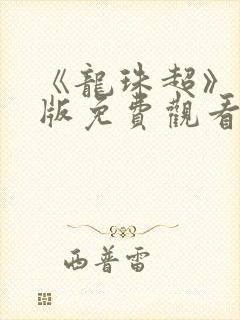 《龍珠超》
版免費觀看
西普雷